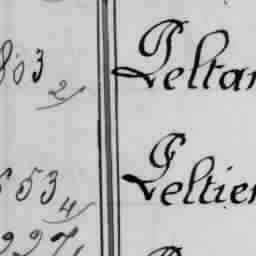 803 2 Peltan
553 4 Peltier
227,